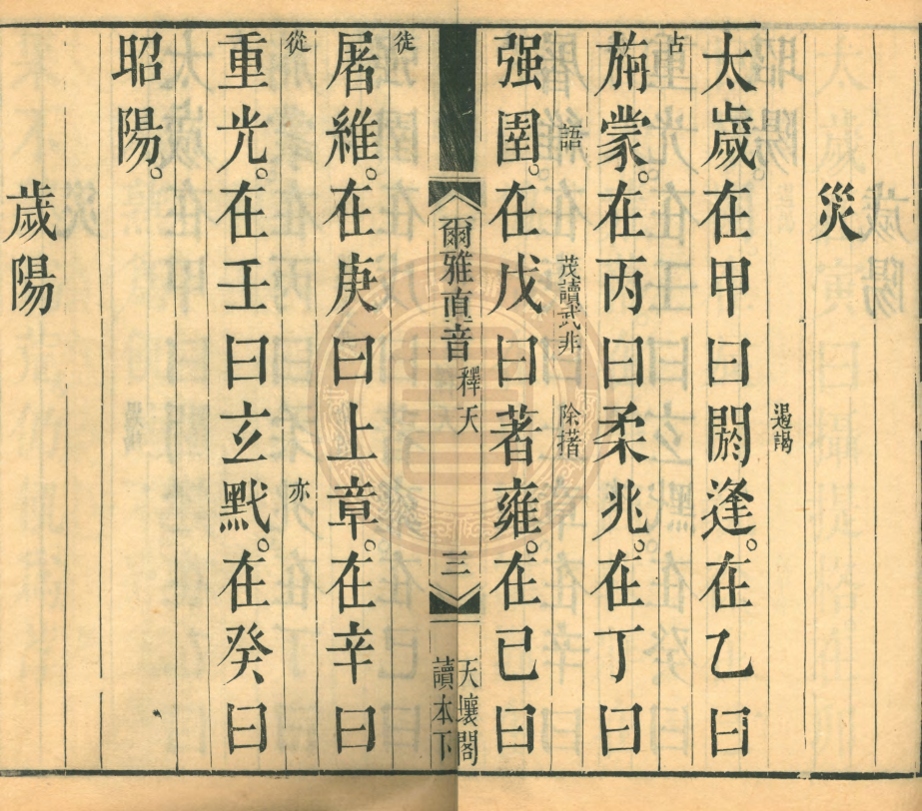 災
遏謁
太歲。在甲曰閼逢。在乙曰
占
旃蒙。在丙曰柔兆。在丁曰
語 茂讀武非 除
强圉。在戊曰著雍。在已曰
爾雅直音 釋天 三 天壤閣
讀本下
徒
屠維。在庚曰上章。在辛曰
從 亦
重光。在壬曰玄黓。在癸曰
昭陽。
歲陽